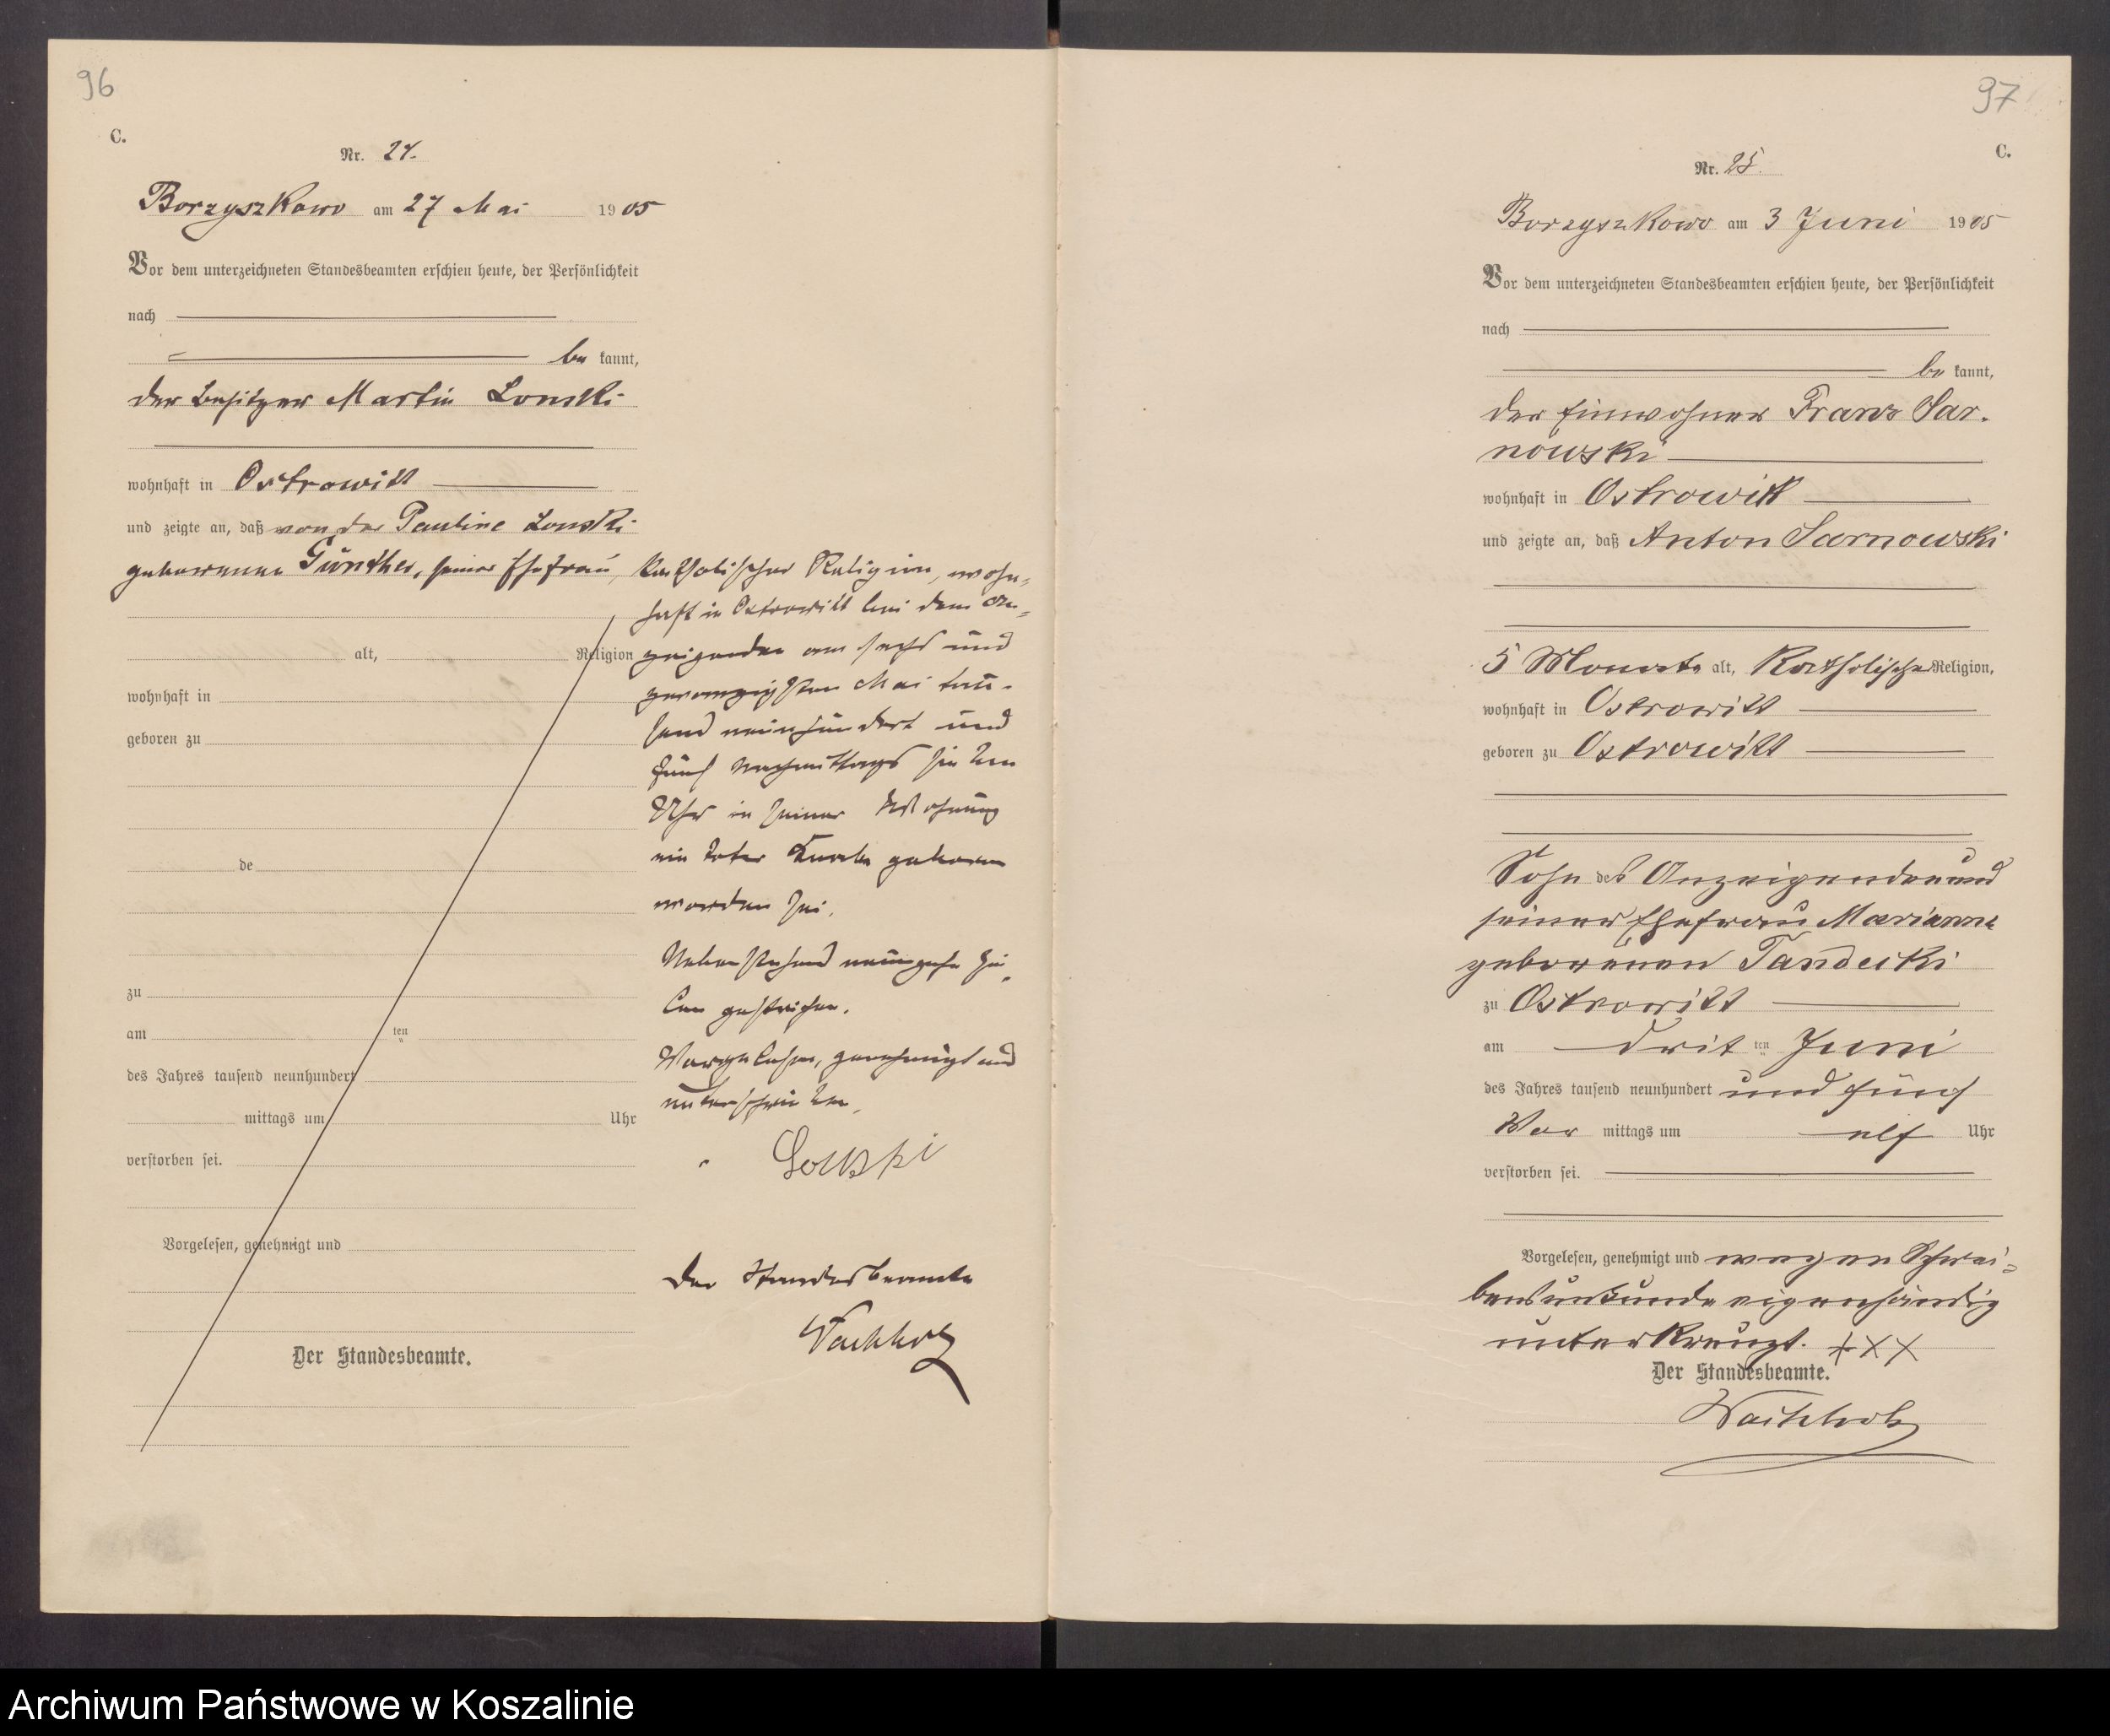 96
C.
Nr. 24.
Borzyszkowo am 27 Mai 1905
Vor dem unterzeichneten Standesbeamten erschien heute, der Persönlichkeit
nach
be kannt,
der Besitzer Martin Lonski
wohnhaft in Ostrowitt
und zeigte an, daß von der Pauline Lonski
geborenen Günther, seiner Ehefrau, katholischer Religion, wohn-
haft in Ostrowitt bei dem An-
alt, Religion zeigenden am sechs und
wohnhaft in zwanzigsten Mai tau-
geboren zu send neunhundert und
fünf Nachmittags sieben
Uhr in seiner Wohnung
de ein toter Knabe geboren
worden sei.
Nebenstehend neunzehn Zei-
zu len gestrichen.
am ten
des Jahres tausend neunhundert Vorgelesen, genehmigt und
mittags um Uhr unterschrieben
verstorben sei. Lonski
Vorgelesen, genehmigt und
Der Standesbeamte
Wachholz
Der Standesbeamte.
97
C.
Nr. 25.
Borzyszkowo am 3 Juni 1905
Vor dem unterzeichneten Standesbeamten erschien heute, der Persönlichkeit
nach
be kannt,
der Einwohner Franz Sar-
nowski
wohnhaft in Ostrowitt
und zeigte an, daß Anton Sarnowski
5 Monate alt, Katholischer Religion,
wohnhaft in Ostrowitt
geboren zu Ostrowitt
Sohn des Anzeigenden und
seiner Ehefrau Marianna
geborenen Tandecki
zu Ostrowitt
am drit ten Juni
des Jahres tausend neunhundert und fünf
Vor mittags um elf Uhr
verstorben sei.
Vorgelesen, genehmigt und wegen Schrei-
bensunkunde eigenhändig
unterkreuzt. +××
Der Standesbeamte.
Wachholz
Archiwum Państwowe w Koszalinie